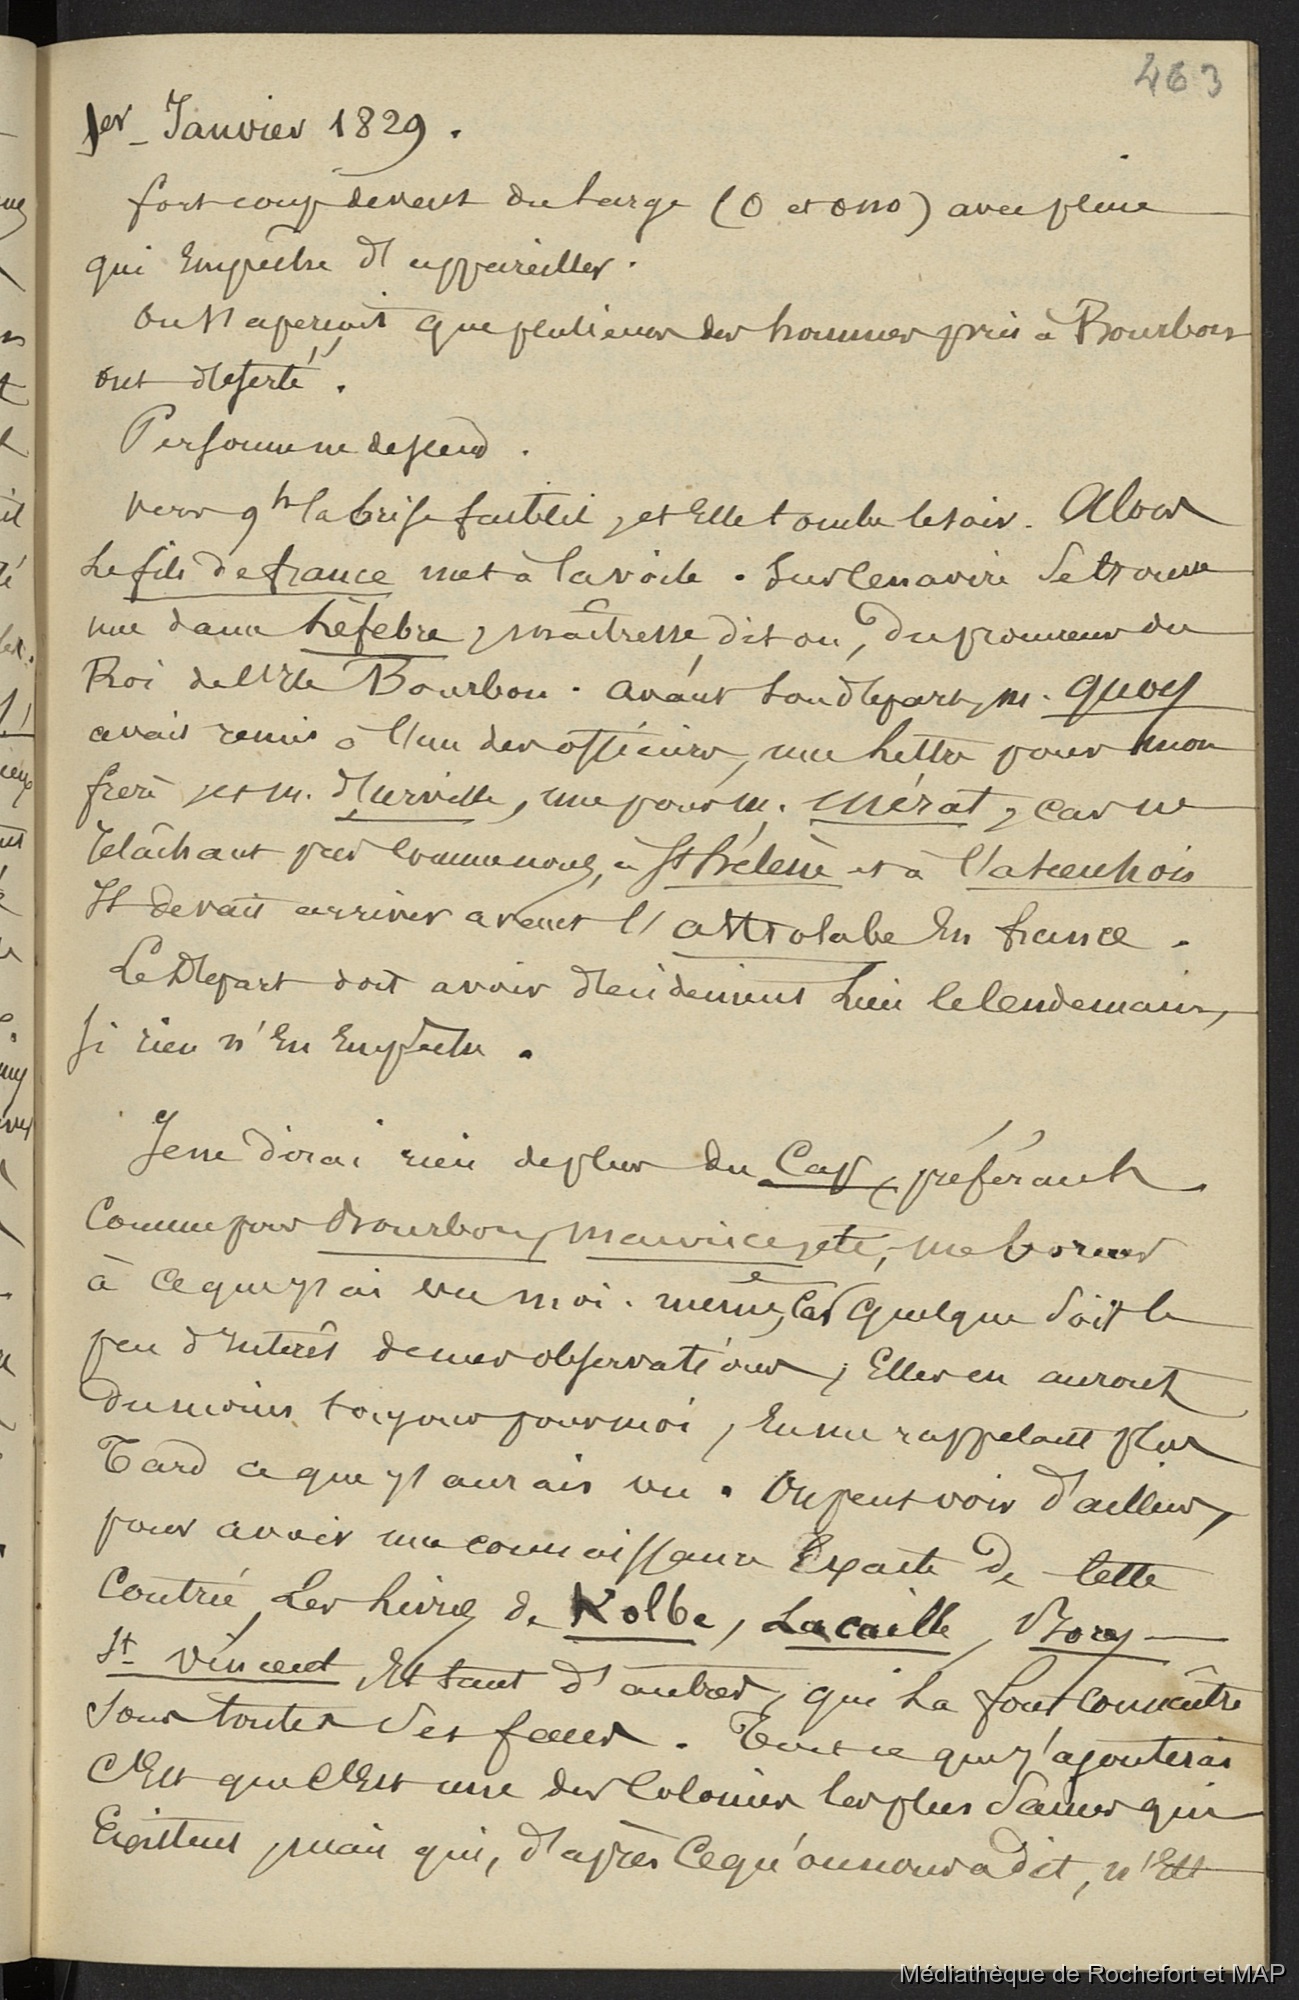 463
1er Janvier 1829.
fort coup de vent du large (O et ONO) avec pluie
qui Empêche d'appareiller.
On s'aperçoit que plusieurs des hommes pris à Bourbon
ont déserté.
Personne ne descend.
Vers 9h la brise faiblit, et Elle tombe le soir. Alors
Le fils de france met à la voile. Sur le navire se trouve
une dame Lefebre, maîtresse, dit on, du procureur du
Roi de l'Ile Bourbon. Avant son départ, M. Quoy
avait remis à l'un des officiers, une Lettre pour mon
frère, et M. d'urville, une pour M. Mérat, car ne
relâchant pas comme nous, à St hélène et à l'ascension
Il devait arriver avant l'astrolabe En france.
Le Départ doit avoir décidément Lieu le lendemain,
si rien n'En Empêche.
Je ne dirai rien de plus du Cap, préférant
comme pour Bourbon, Maurice, etc, me borner
à ce que j'ai vu moi-même, Car quelque soit le
peu d'Intérêt de mes observations, Elles en auront
du moins toujours pour moi, En me rappelant plus
Tard ce que j'aurais vu. On peut voir d'ailleurs,
pour avoir une connaissance Exacte de Cette
Contrée, Les Livres de Kolbe, Lacaille, Bory
St Vincent, Et tant d'autres, qui La font connaître
sous toutes ses faces. Tout ce que j'ajouterai
C'Est que C'Est une des Colonies les plus saines qui
Existent, mais qui, d'après ce qu'on nous a dit, n'Est
Médiathèque de Rochefort et MAP